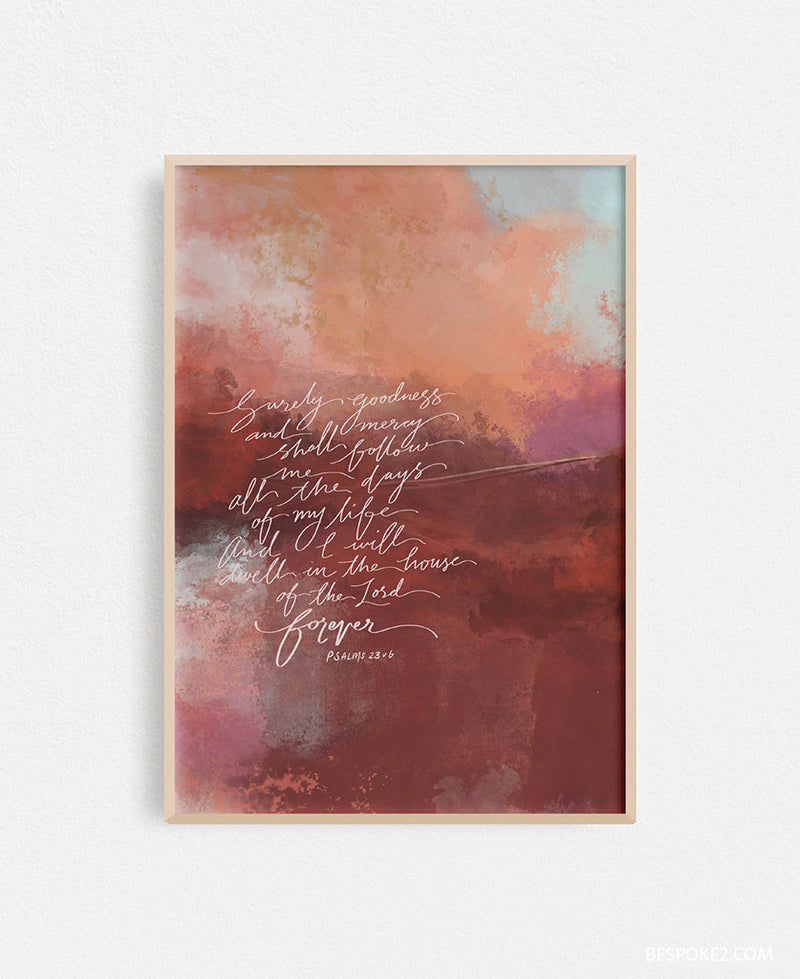 Surely goodness
and mercy
shall follow
me
all the days
of my life
And I will
dwell in the house
of the Lord
forever
PSALMS 23 v 6
BESPOKE2.COM